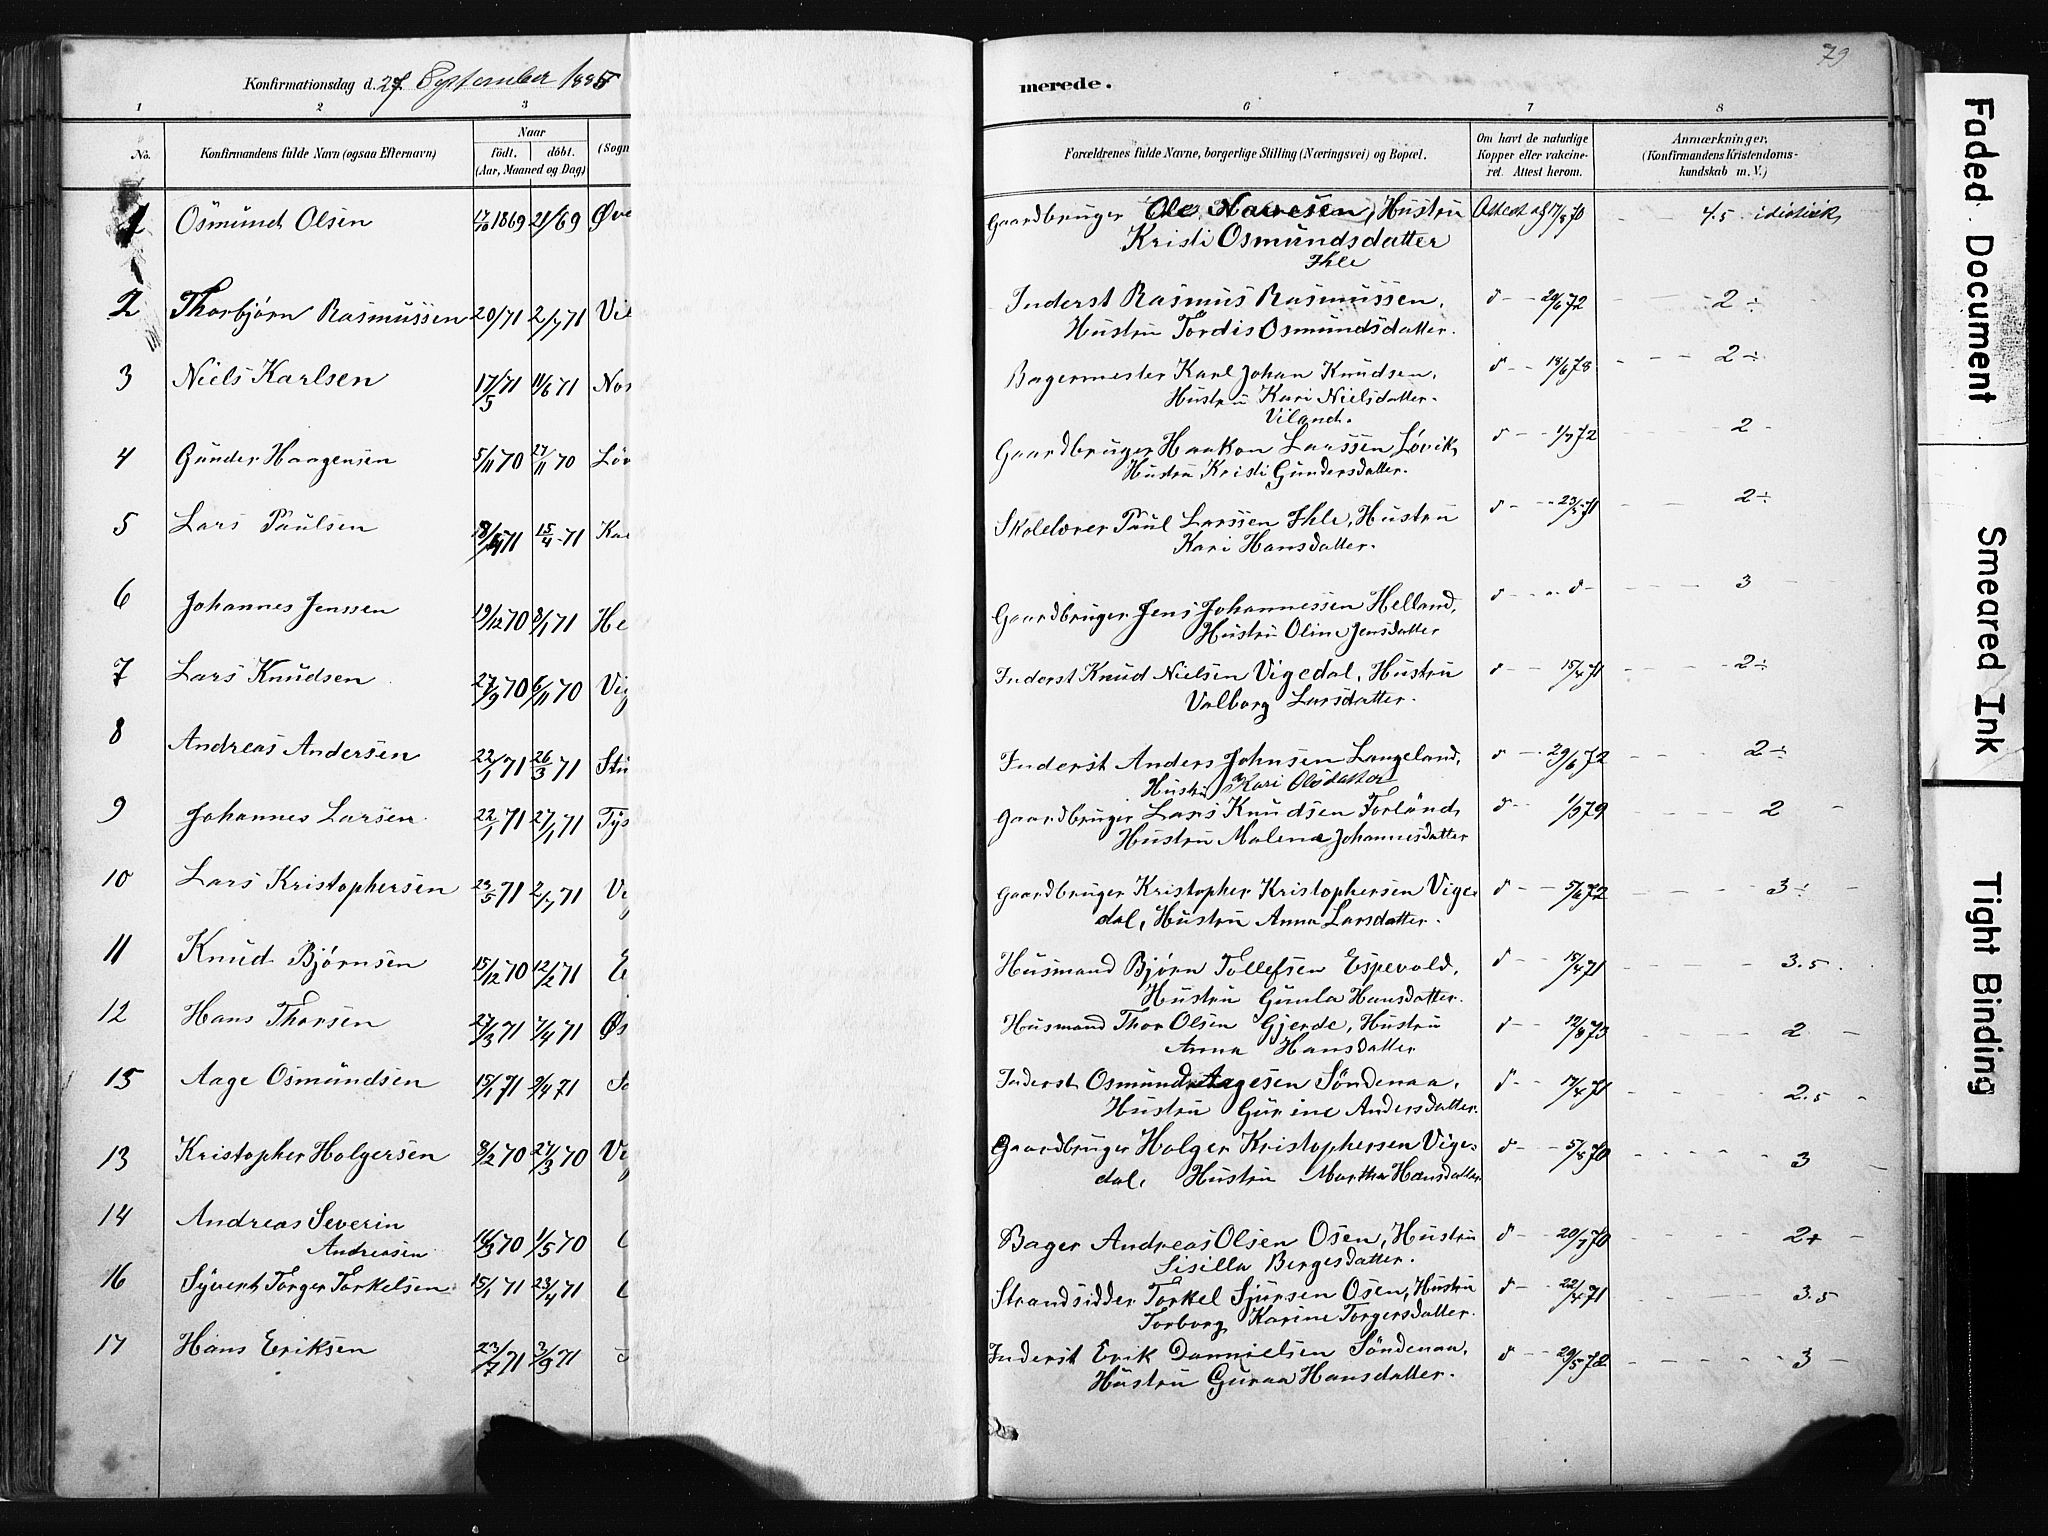 Konfirmationsdag d. 27 September 1885
1 2 3
No. Konfirmandens fulde Navn (ogsaa Efternavn) Naar födt. döbt. (Aar, Maaned og Dag) (Sogn
1 Osmund Olsen 17/10 1869 21/ 69 Øve
2 Thorbjørn Rasmussen 20/ 71 2/7 71 Vil
3 Niels Karlsen 17/5 71 11/6 71 Nos
4 Gunder Haagensen 5/11 70 27/11 70 Löv
5 Lars Paulsen 71 15/4 71
6 Johannes Jenssen 19/12 70 8/1 71 He
7 Lars Knudsen 27/9 70 6/11 70 Vig
8 Andreas Andersen 22/1 71 26/3 71 Stu
9 Johannes Larsen 22/1 71 27/1 71 Tys
10 Lars Kristophersen 23/5 71 2/7 71 Vi
11 Knud Bjørnsen 15/12 70 12/2 71 E
12 Hans Thorsen 27/3 71 7/4 71 Øs
15 Aage Osmundsen 15/1 71 9/4 71 So
13 Kristopher Holgersen 9/2 70 27/3 70 Vi
14 Andreas Severin
Andreasen 70 1/5 70
16 Syvert Torger Torkelsen 15/1 71 23/4 71
17 Hans Eriksen 23/7 71 3/9 71
79
merede.
6 7 8
Forældrenes fulde Navne, borgerlige Stilling (Næringsvei) og Bopæl.
Om havt de naturlige Kopper eller vakcineret. Attest herom.
Anmærkninger, (Konfirmandens Kristendomskundskab m. V.)
Gaardbruger Ole Hustru Attest af 17/8 70 4.5 idiotisk
Kristi Osmundsdatter
Ihle
Inderst Rasmus Rasmussen, d - - 29/6 72 - - - 2 ÷
Hustru Tordis Osmundsdatter.
Bagermester Karl Johan Knudsen, d - - 18/6 78 - - - 2 ÷
Hustru Kari Nielsdatter.
Viland.
Gaardbruger Haakon Larssen Løvik, d - - 1/7 72 2 -
Hustru Kristi Gundersdatter.
Skolelærer Paul Larssen Ihle, Hustru d - - 23/5 71 - - - 2 ÷
Kari Hansdatter.
Gaardbruger Jens Johannessen Helland, d - - d - - - - 3 -
Hustru Oline Jensdatter
Inderst Knud Nielsen Vigedal, Hustru d - - 15/4 71 - - - 2 ÷
Valborg Larsdatter.
Inderst Anders Johnsen Langeland, d - - 29/6 72 - - - 2 ÷
Hustru Kari Olsdatter
Gaardbruger Lars Knudsen Forland, d - - 1/9 79 - - - - 2 -
Hustru Malena Johannesdatter
Gaardbruger Kristopher Kristophersen Vige- d - - 5/6 72 - - - - 3 ÷ -
dal, Hustru Anna Larsdatter.
Husmand Bjørn Tollefsen Espevold, d - - 15/4 71 - - - - 3.5 .
Hustru Gunla Hansdatter.
Husmand Thor Olsen Gjerde, Hustru d - - 12/8 73 - - - - 2 -
Anna Hansdatter
Inderst Osmund Aagesen Söndenaa, d - - 17/4 71 - - - - 2.5 -
Hustru Gurine Andersdatter.
Gaardbruger Holger Kristophersen Vige- d - - 5/8 70 - - - - 3 -
dal, Hustru Martha Hansdatter
Bager Andreas Olsen Osen, Hustru d - - 20/7 70 2+ -
Sisilla Bergesdatter.
Strandsidder Torkel Sjursen Osen, Hustru d - - 22/4 71 - - - - 3.5
Torborg Karine Torgersdatter.
Inderst Erik Danielsen Söndenaa, d - - 29/5 72 - - - - - 3 -
Hustru Guraa Hansdatter.
Faded Document
Smeared Ink
Tight Binding